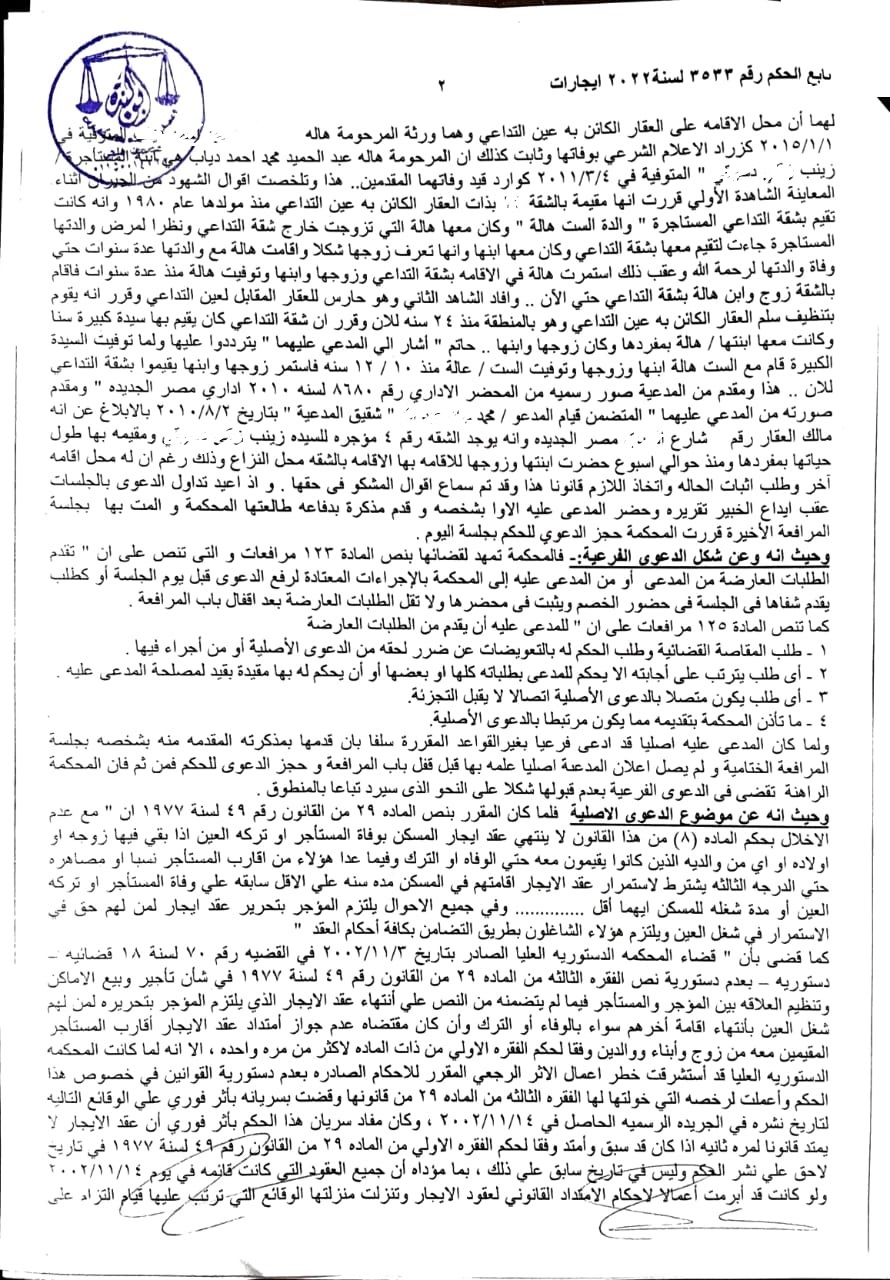 تابع الحكم رقم ٣٥٣٣ لسنة٢٠٢٢ ايجارات
٢
لهما أن محل الاقامه على العقار الكائن به عين التداعي وهما ورثة المرحومة هاله المتوفية في
٢٠١٥/١/١ كزراد الاعلام الشرعي بوفاتها وثابت كذلك ان المرحومة هاله عبد الحميد محمد احمد دياب هي ابنة المستأجرة /
زينب " المتوفية في ٢٠١١/٣/٤ كوارد قيد وفاتهما المقدمين.. هذا وتلخصت اقوال الشهود من الجيران أثناء
المعاينة الشاهدة الأولي قررت انها مقيمة بالشقة بذات العقار الكائن به عين التداعي منذ مولدها عام ١٩٨٠ وانه كانت
تقيم بشقة التداعي المستاجرة " والدة الست هالة " وكان معها هالة التي تزوجت خارج شقة التداعي ونظرا لمرض والدتها
المستاجرة جاءت لتقيم معها بشقة التداعي وكان معها ابنها وانها تعرف زوجها شكلا واقامت هالة مع والدتها عدة سنوات حتي
وفاة والدتها لرحمة الله وعقب ذلك استمرت هالة في الاقامه بشقة التداعي وزوجها وابنها وتوفيت هالة منذ عدة سنوات فاقام
بالشقة زوج وابن هالة بشقة التداعي حتي الآن .. وافاد الشاهد الثاني وهو حارس للعقار المقابل لعين التداعي وقرر انه يقوم
بتنظيف سلم العقار الكائن به عين التداعي وهو بالمنطقة منذ ٢٤ سنه للان وقرر ان شقة التداعي كان يقيم بها سيدة كبيرة سنا
وكانت معها ابنتها / هالة بمفردها وكان زوجها وابنها .. حاتم " أشار الي المدعي عليهما " يترددوا عليها ولما توفيت السيدة
الكبيرة قام مع الست هالة ابنها وزوجها وتوفيت الست / عالة منذ ١٠ / ١٢ سنه فاستمر زوجها وابنها يقيموا بشقة التداعي
للان .. هذا ومقدم من المدعية صور رسميه من المحضر الاداري رقم ٨٦٨٠ لسنه ٢٠١٠ اداري مصر الجديده " ومقدم
صورته من المدعي عليهما " المتضمن قيام المدعو / محمد " شقيق المدعية " بتاريخ ٢٠١٠/٨/٢ بالابلاغ عن انه
مالك العقار رقم شارع مصر الجديده وانه يوجد الشقه رقم ٤ مؤجره للسيده زينب ومقيمه بها طول
حياتها بمفردها ومنذ حوالي اسبوع حضرت ابنتها وزوجها للاقامه بها الاقامه بالشقه محل النزاع وذلك رغم ان له محل اقامه
آخر وطلب اثبات الحاله واتخاذ اللازم قانونا هذا وقد تم سماع اقوال المشكو في حقها . و اذ اعيد تداول الدعوى بالجلسات
عقب ايداع الخبير تقريره وحضر المدعى عليه الاوا بشخصه و قدم مذكرة بدفاعه طالعتها المحكمة و المت بها بجلسة
المرافعة الأخيرة قررت المحكمة حجز الدعوي للحكم بجلسة اليوم .
وحيث انه وعن شكل الدعوى الفرعية:- فالمحكمة تمهد لقضائها بنص المادة ١٢٣ مرافعات و التى تنص على ان " تقدم
الطلبات العارضة من المدعى أو من المدعى عليه إلى المحكمة بالإجراءات المعتادة لرفع الدعوى قبل يوم الجلسة أو كطلب
يقدم شفاها فى الجلسة فى حضور الخصم ويثبت فى محضرها ولا تقل الطلبات العارضة بعد اقفال باب المرافعة .
كما تنص المادة ١٢٥ مرافعات على ان " للمدعى عليه أن يقدم من الطلبات العارضة
١ - طلب المقاصة القضائية وطلب الحكم له بالتعويضات عن ضرر لحقه من الدعوى الأصلية أو من أجراء فيها .
٢ - أى طلب يترتب على أجابته الا يحكم للمدعى بطلباته كلها او بعضها أو أن يحكم له بها مقيدة بقيد لمصلحة المدعى عليه .
٣ - أى طلب يكون متصلا بالدعوى الأصلية اتصالا لا يقبل التجزئة.
٤ - ما تأذن المحكمة بتقديمه مما يكون مرتبطا بالدعوى الأصلية.
ولما كان المدعى عليه اصليا قد ادعى فرعيا بغيرالقواعد المقررة سلفا بان قدمها بمذكرته المقدمه منه بشخصه بجلسة
المرافعة الختامية و لم يصل اعلان المدعىة اصليا علمه بها قبل قفل باب المرافعة و حجز الدعوى للحكم فمن ثم فان المحكمة
الراهنة تقضى فى الدعوى الفرعية بعدم قبولها شكلا على النحو الذى سيرد تباعا بالمنطوق .
وحيث انه عن موضوع الدعوى الاصلية فلما كان المقرر بنص الماده ٢٩ من القانون رقم ٤٩ لسنة ١٩٧٧ ان " مع عدم
الاخلال بحكم الماده (٨) من هذا القانون لا ينتهي عقد ايجار المسكن بوفاة المستأجر او تركه العين اذا بقي فيها زوجه او
اولاده او اي من والديه الذين كانوا يقيمون معه حتي الوفاه او الترك وفيما عدا هؤلاء من اقارب المستأجر نسبا او مصاهره
حتي الدرجه الثالثه يشترط لاستمرار عقد الايجار اقامتهم في المسكن مده سنه علي الاقل سابقه علي وفاة المستأجر او تركه
العين أو مدة شغله للمسكن ايهما أقل ............. وفي جميع الاحوال يلتزم المؤجر بتحرير عقد ايجار لمن لهم حق في
الاستمرار في شغل العين ويلتزم هؤلاء الشاغلون بطريق التضامن بكافة أحكام العقد "
كما قضى بأن " قضاء المحكمه الدستوريه العليا الصادر بتاريخ ٢٠٠٢/١١/٣ في القضيه رقم ٧٠ لسنة ١٨ قضائيه –
دستوريه – بعدم دستورية نص الفقره الثالثه من الماده ٢٩ من القانون رقم ٤٩ لسنة ١٩٧٧ في شأن تأجير وبيع الاماكن
وتنظيم العلاقه بين المؤجر والمستأجر فيما لم يتضمنه من النص علي أنتهاء عقد الايجار الذي يلتزم المؤجر بتحريره لمن لهم
شغل العين بأنتهاء اقامة أخرهم سواء بالوفاء أو الترك وأن كان مقتضاه عدم جواز أمتداد عقد الايجار أقارب المستأجر
المقيمين معه من زوج وأبناء ووالدين وفقا لحكم الفقره الاولي من ذات الماده لاكثر من مره واحده ، الا انه لما كانت المحكمه
الدستوريه العليا قد أستشرقت خطر اعمال الاثر الرجعي المقرر للاحكام الصادره بعدم دستورية القوانين في خصوص هذا
الحكم وأعملت لرخصه التي خولتها لها الفقره الثالثه من الماده ٢٩ من قانونها وقضت بسريانه بأثر فوري علي الوقائع التاليه
لتاريخ نشره في الجريده الرسميه الحاصل في ٢٠٠٢/١١/١٤ ، وكان مفاد سريان هذا الحكم بأثر فوري أن عقد الايجار لا
يمتد قانونا لمره ثانيه اذا كان قد سبق وأمتد وفقا لحكم الفقره الاولي من الماده ٢٩ من القانون رقم ٤٩ لسنة ١٩٧٧ في تاريخ
لاحق علي نشر الحكم وليس في تاريخ سابق علي ذلك ، بما مؤداه أن جميع العقود التي كانت قائمه في يوم ٢٠٠٢/١١/١٤
ولو كانت قد أبرمت أعمالا لاحكام الامتداد القانوني لعقود الايجار وتنزلت منزلتها الوقائع التي ترتب عليها قيام التزام على